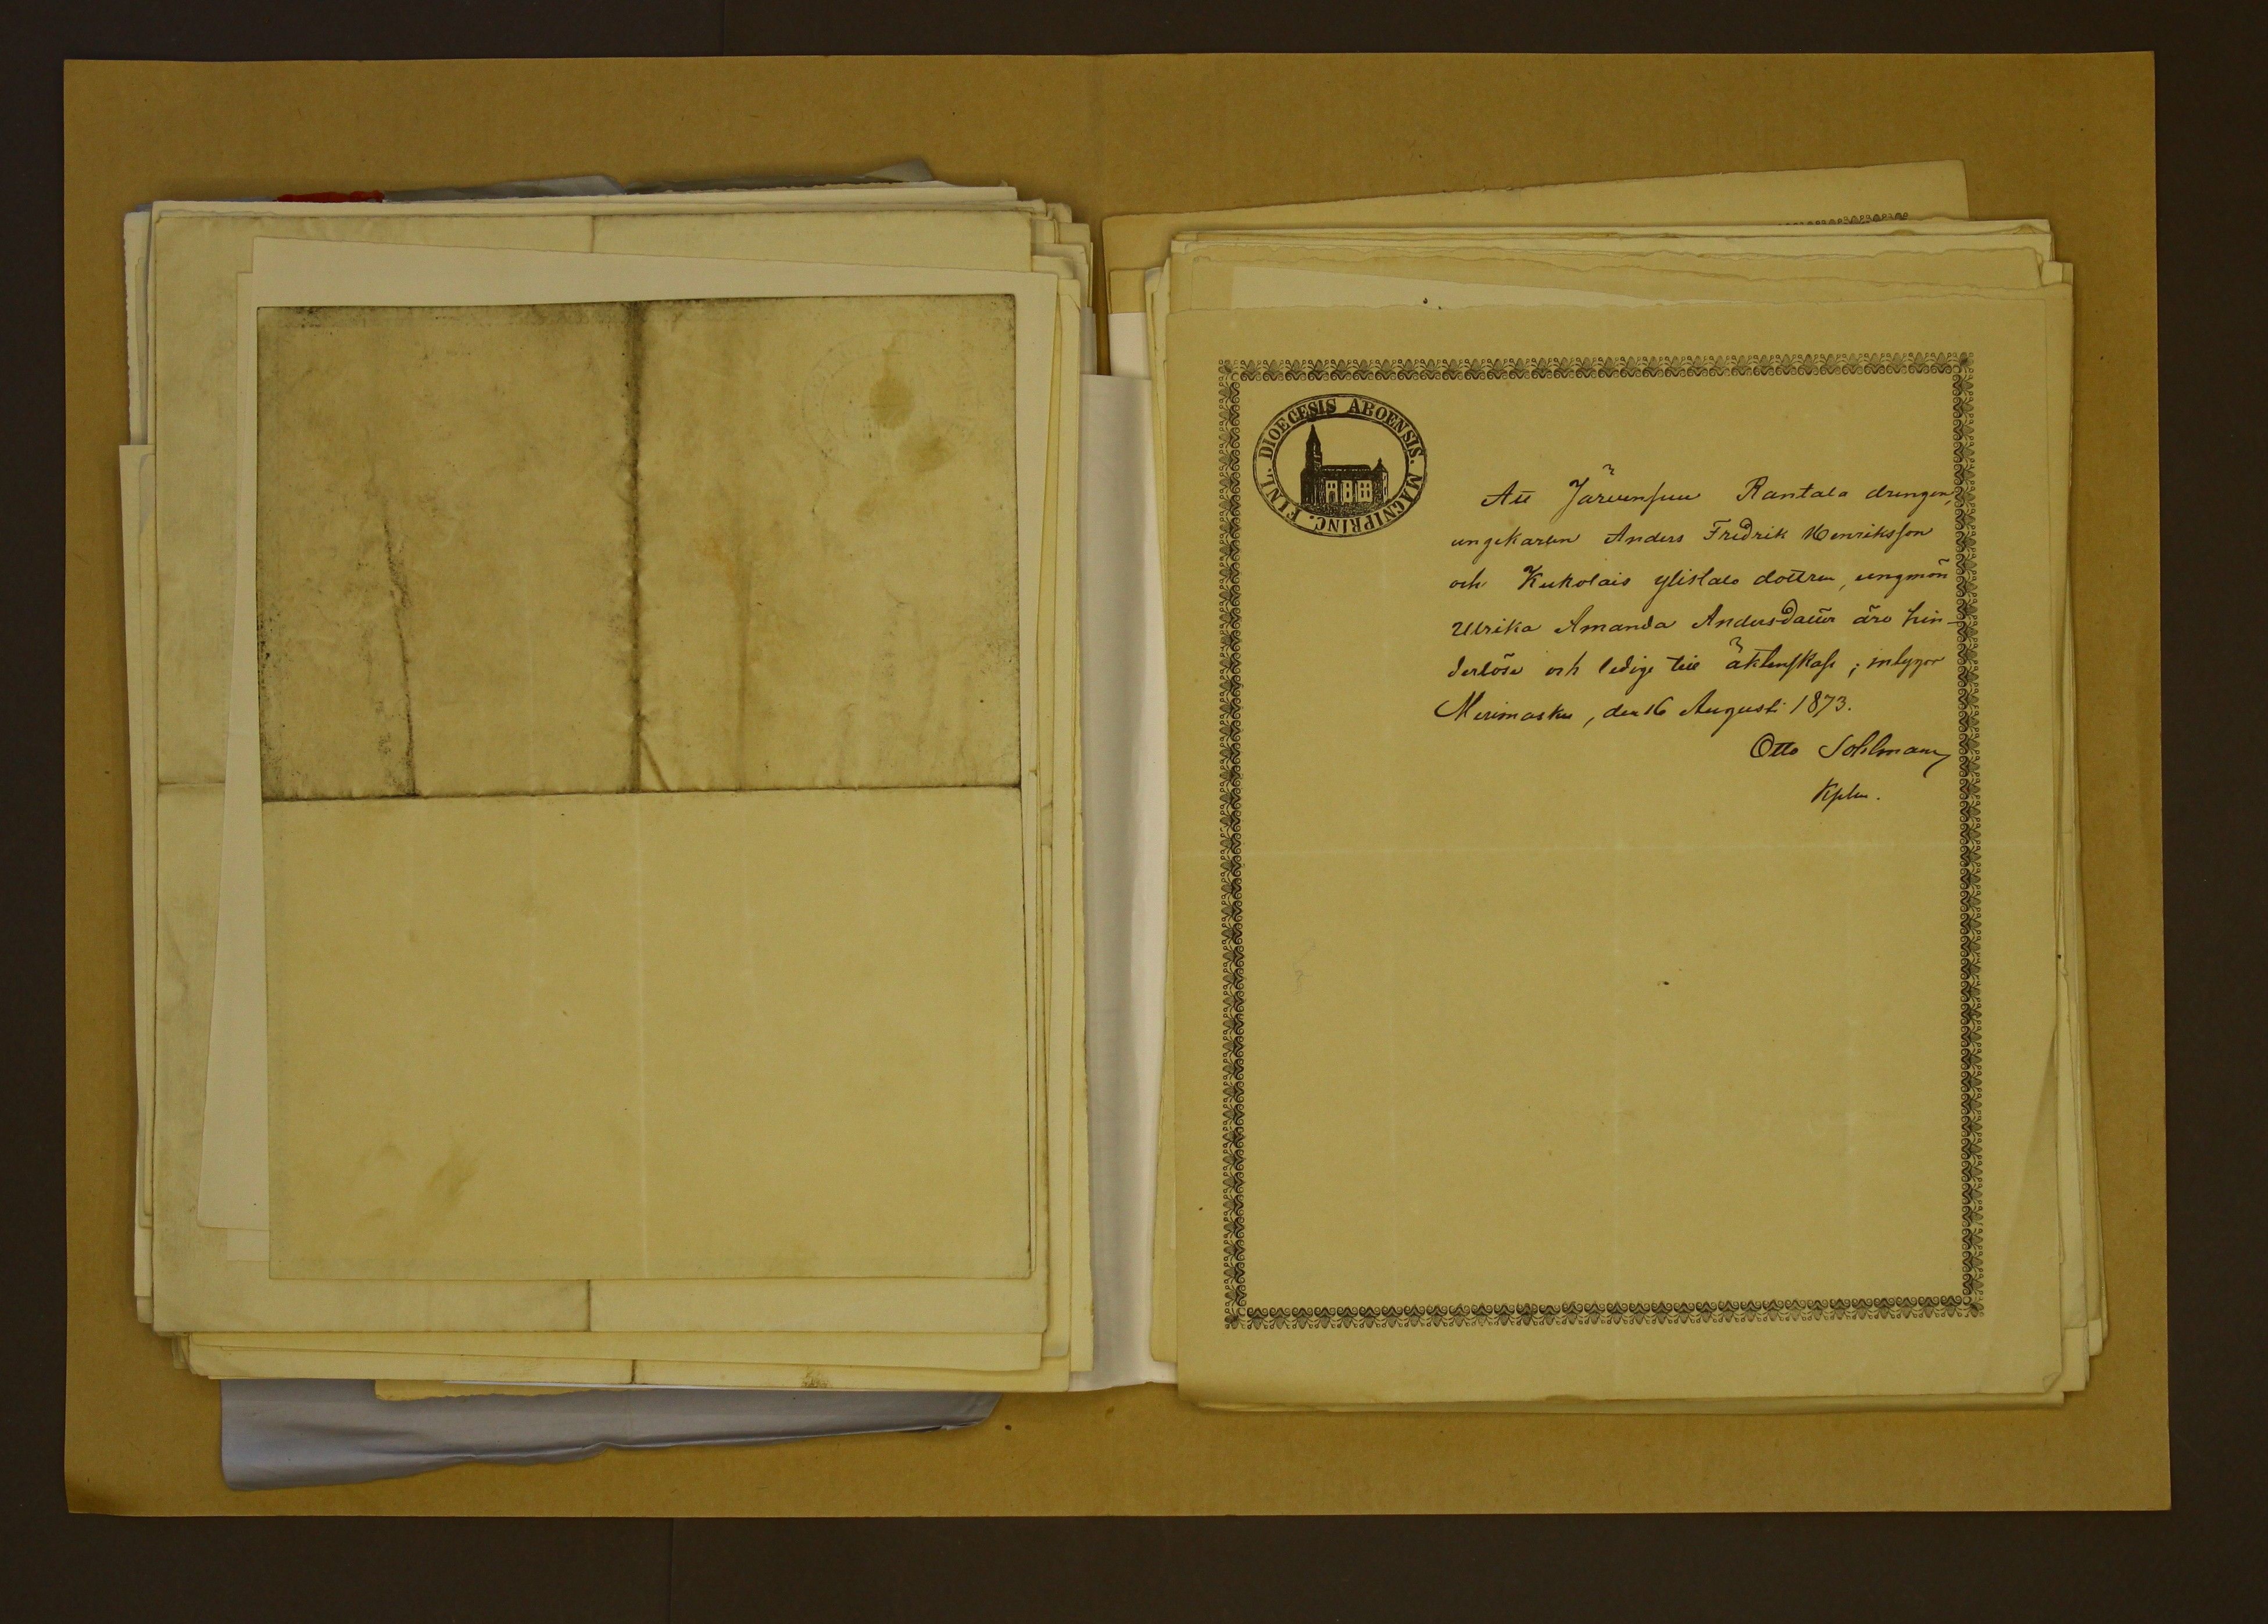 DIOECESIS ABOENSIS. MAGNI PRINC. FINL.
Att Järvensuu Rantala drengen,
ungkarlen Anders Fredrik Henriksson
och Kukolais Ylistalo dottren, ungmön
Ulrika Amanda Andersdatter äro hin-
derlöse och ledige till äktenskap; intygar
Merimasku, den 16 Augusti 1873.
Otto Sohlman
Kpln.